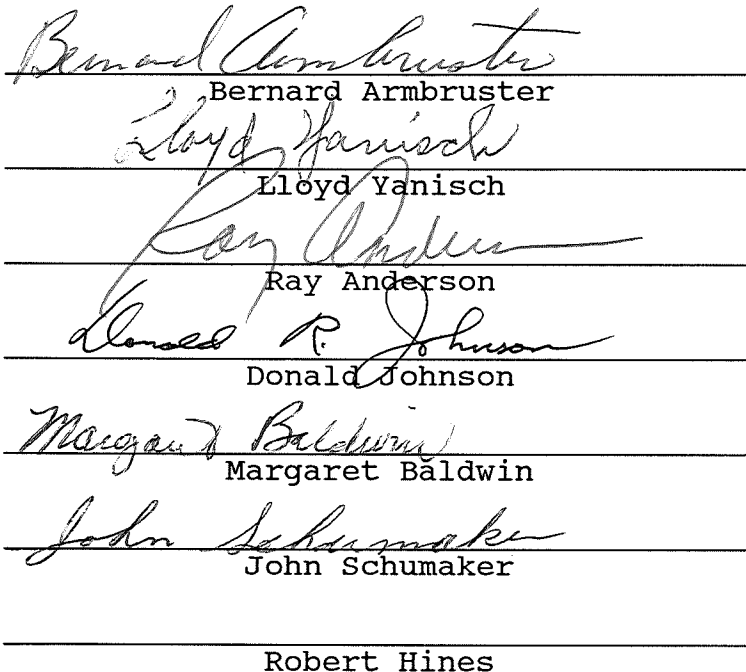 Bernard Armbruster
Bernard Armbruster
Lloyd Yanisch
Lloyd Yanisch
Ray Anderson
Ray Anderson
Donald R. Johnson
Donald Johnson
Margaret Baldwin
Margaret Baldwin
John Schumaker
John Schumaker
Robert Hines